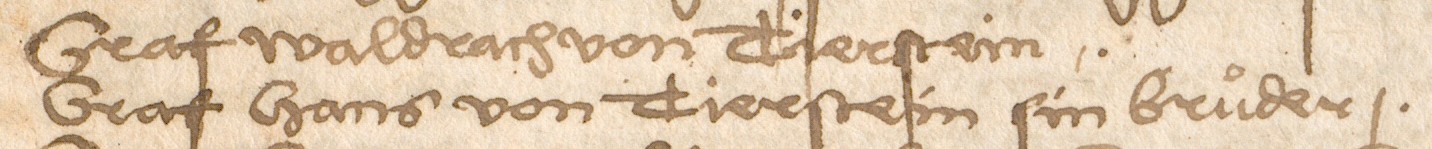 Graf waldrach von Tierstein /.
Graf Hans von Tierstein sin brůder /.